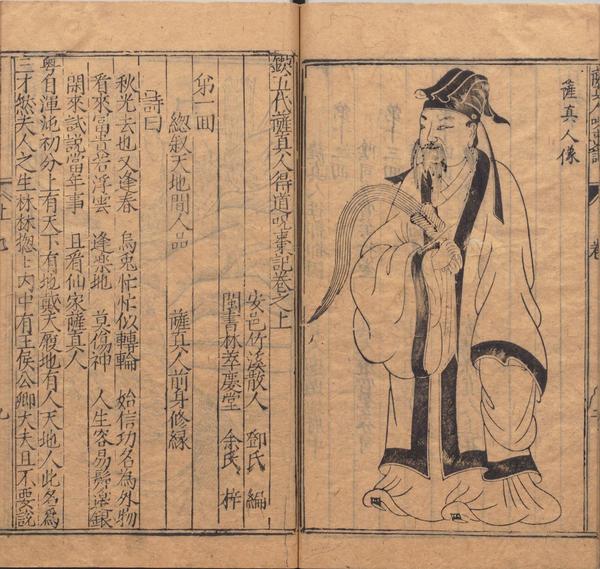 薩真人像
鍥五代薩真人得道呪棗記卷之上
安邑竹溪散人 鄧氏 編
閩書林萃慶堂 余氏 梓
第一回
總叙天地間人品 薩真人前身修緣
詩曰
秋光去也又逢春 烏兎忙忙似轉輪 始信功名為外物
看來富貴若浮雲 逢樂地 莫傷神 人生容易鬂邊銀
閑來試說當年事 且看仙家薩真人
粤自渾沌初分上有天下有地戴天履地有人天地人此名為
三才然夫人之生林林揔匕內中有王侯公卿大夫且不要說